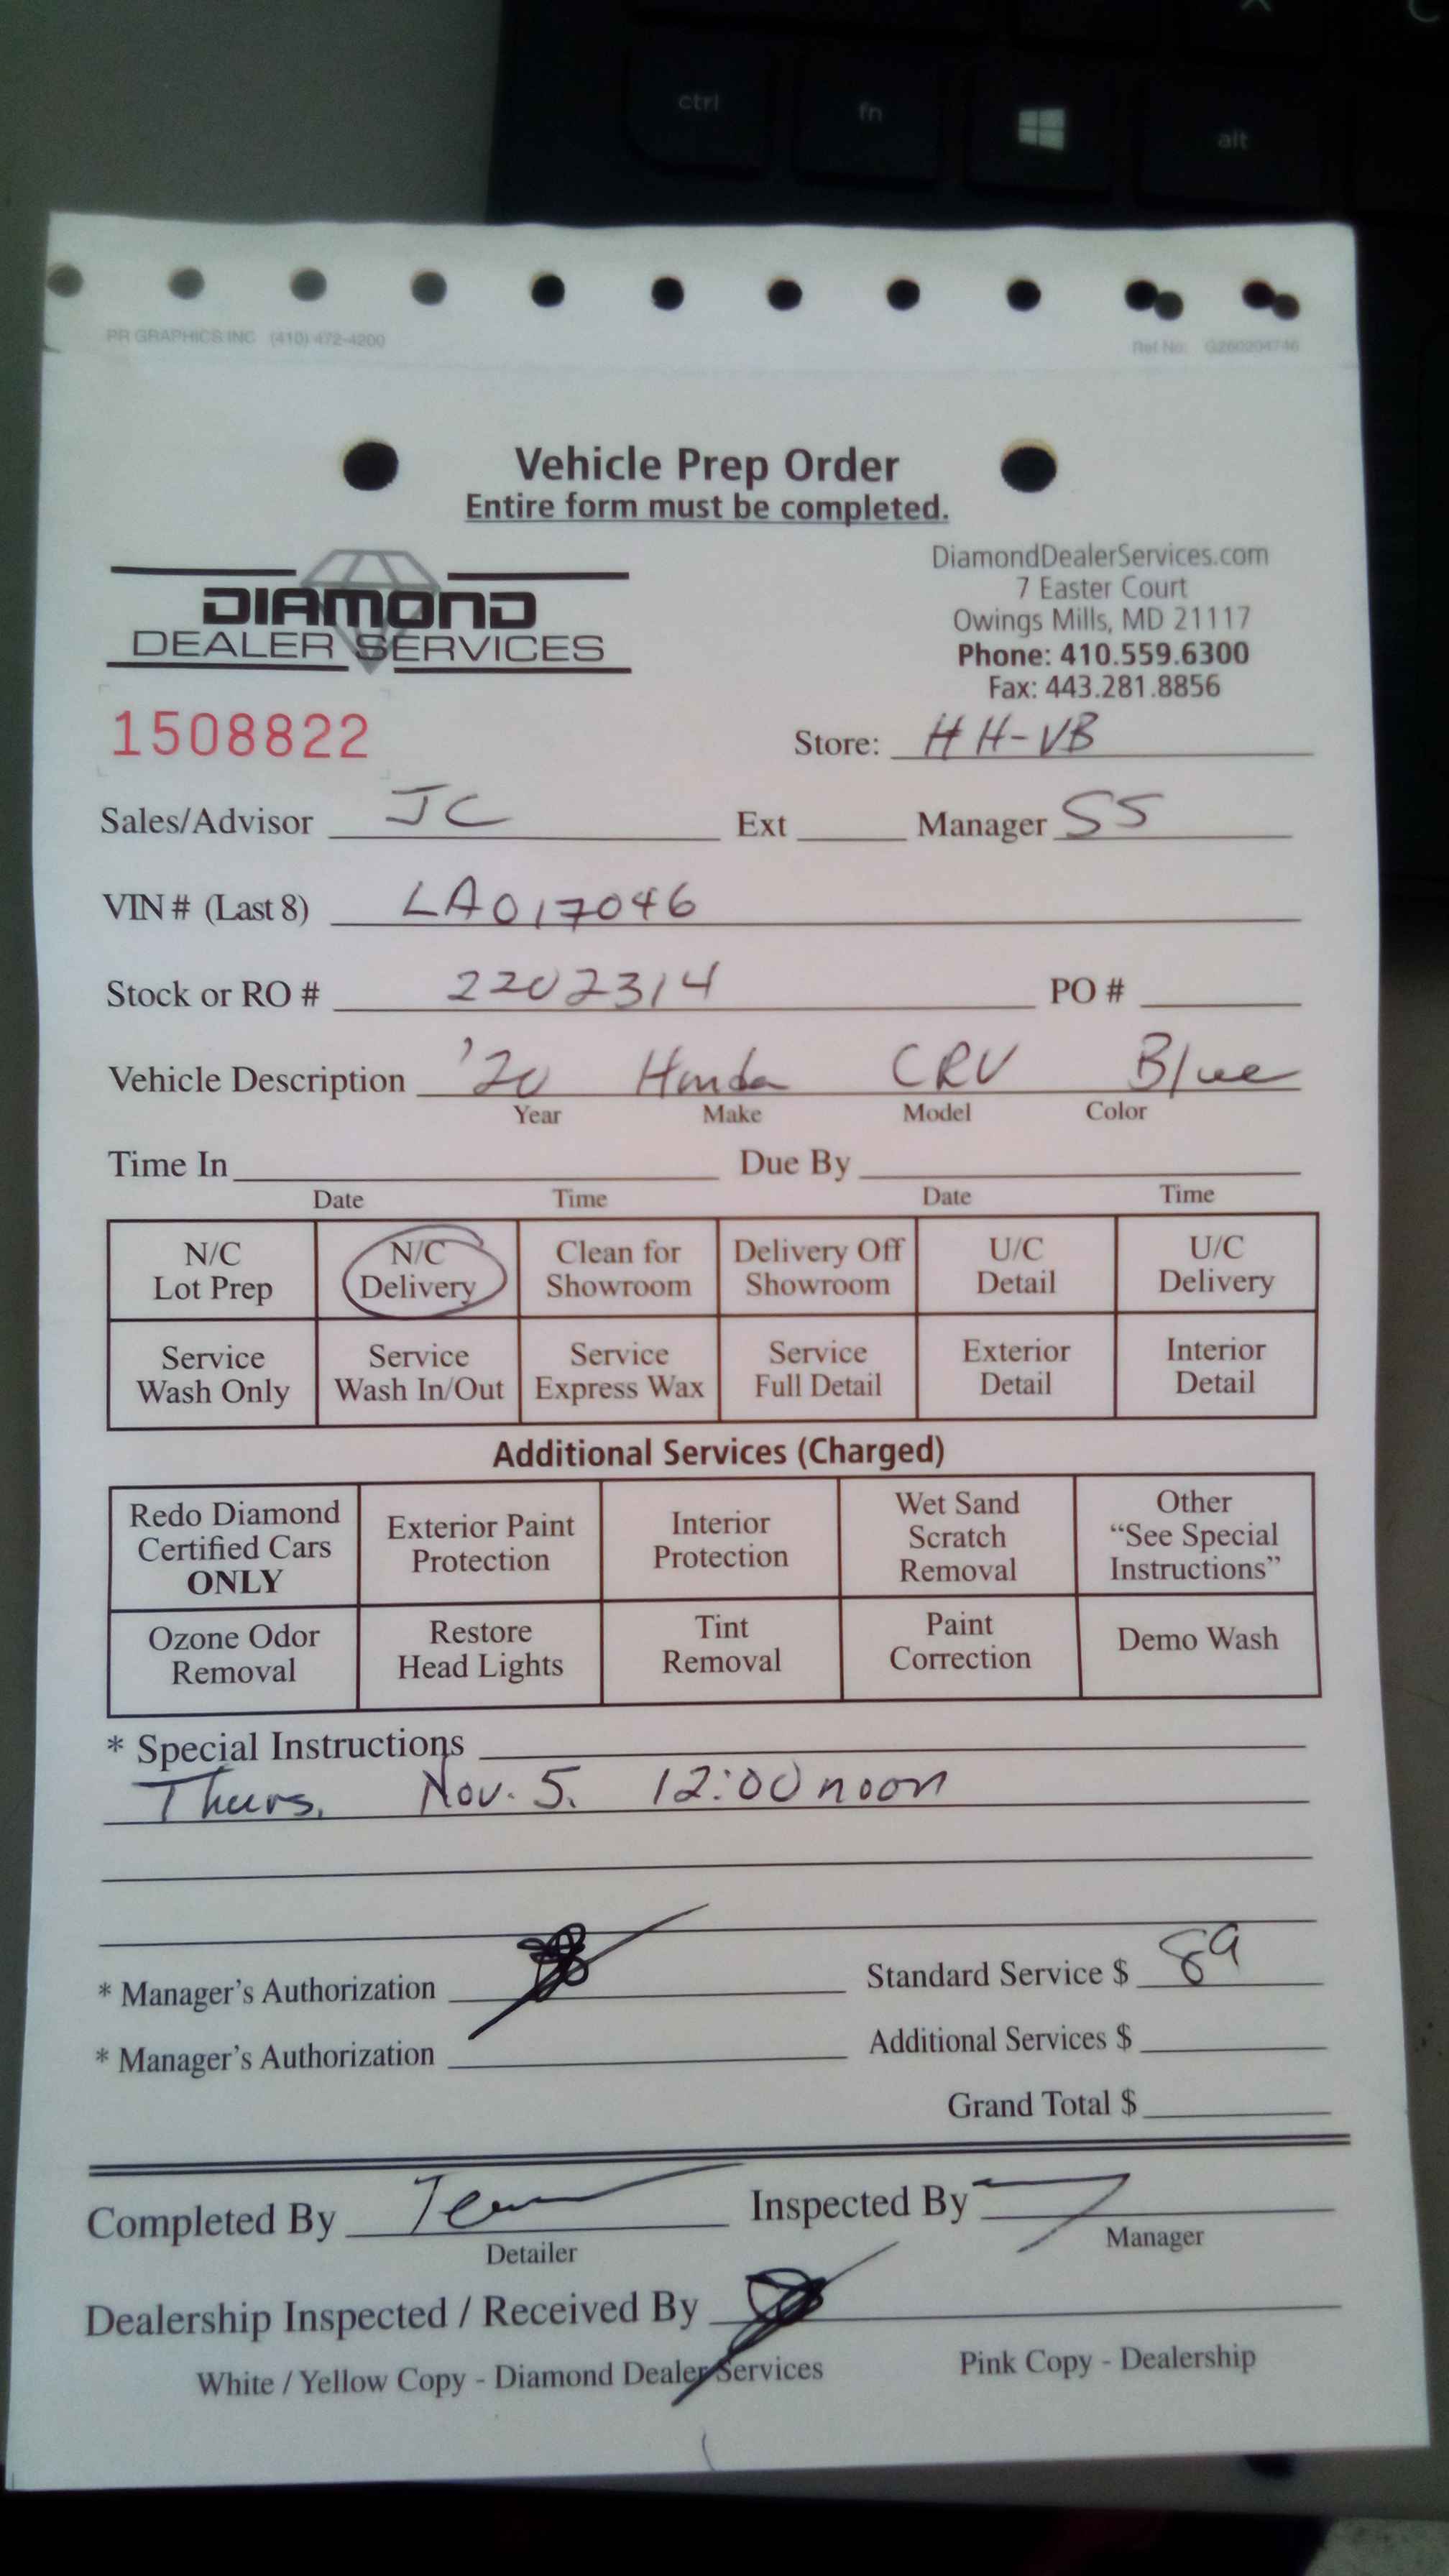 ctrl fn alt
PR GRAPHICS INC (410) 472-4200 Ref No: G260204746
Vehicle Prep Order
Entire form must be completed.
DIAMOND
DEALER SERVICES
DiamondDealerServices.com
7 Easter Court
Owings Mills, MD 21117
Phone: 410.559.6300
Fax: 443.281.8856
1508822
Store: HH-VB
Sales/Advisor JC Ext Manager SS
VIN # (Last 8) LA017046
Stock or RO # 2202314 PO #
Vehicle Description '20 Honda CRV Blue
Year Make Model Color
Time In Due By
Date Time Date Time
N/C Lot Prep N/C Delivery Clean for Showroom Delivery Off Showroom U/C Detail U/C Delivery
Service Wash Only Service Wash In/Out Service Express Wax Service Full Detail Exterior Detail Interior Detail
Additional Services (Charged)
Redo Diamond Certified Cars ONLY Exterior Paint Protection Interior Protection Wet Sand Scratch Removal Other "See Special Instructions"
Ozone Odor Removal Restore Head Lights Tint Removal Paint Correction Demo Wash
* Special Instructions
Thurs. Nov. 5. 12:00 noon
* Manager's Authorization Standard Service $ 89
* Manager's Authorization Additional Services $
Grand Total $
Completed By Inspected By
Detailer Manager
Dealership Inspected / Received By
White / Yellow Copy - Diamond Dealer Services Pink Copy - Dealership